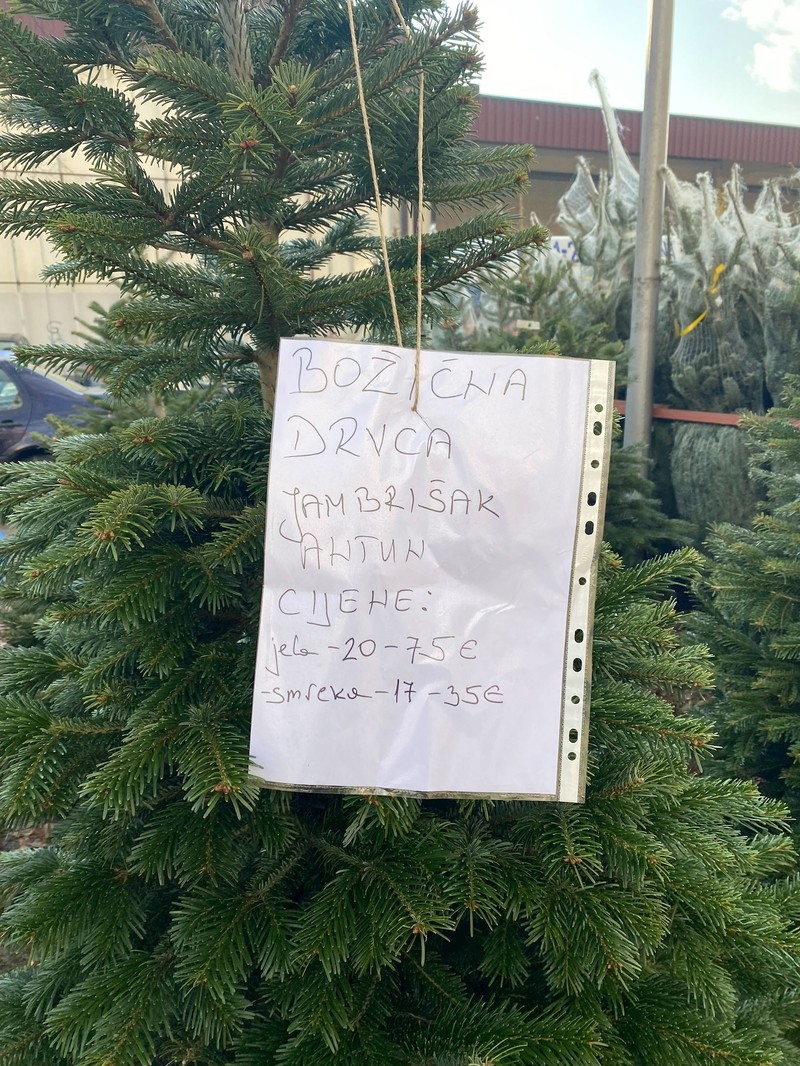 BOŽIČNA
DRVCA
JAMBRIŠAK
ANTUN
CIJENE:
jela -20-75€
-smreka-17-35€